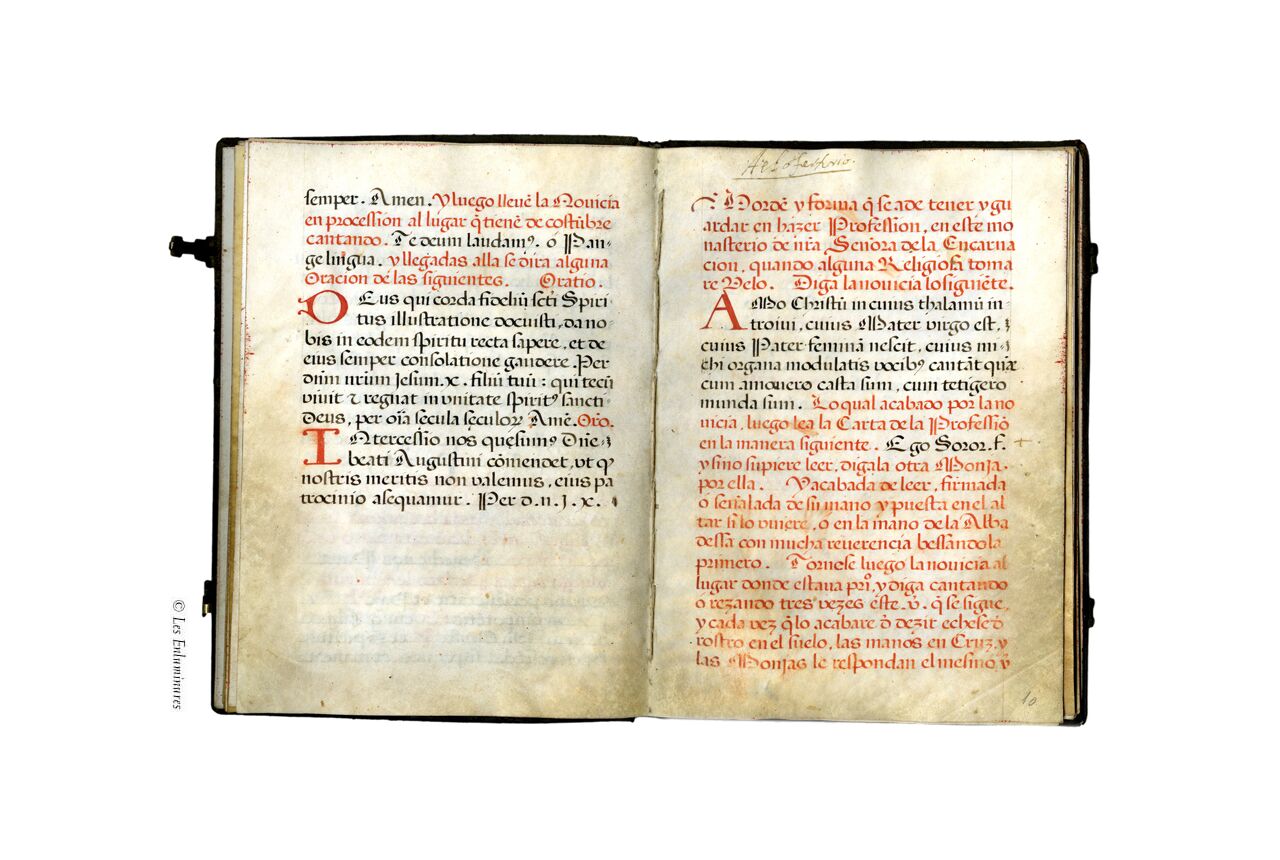 semper. Amen. Y luego lleuē la Nouicia
en procession al lugar q̄ tienē de costūbre
cantando. Te deum laudamꝰ. ó Pan-
ge lingua. y llegadas alla se dira alguna
Oracion de las siguientes. Oratio.
DEus qui corda fideliū scti Spiri
tus illustratione docuisti, da no
bis in eodem spiritu recta sapere, et de
eius semper consolatione gaudere. Per
dnm nrum Jesum. x̄. filiū tuū: qui tecū
viuit ⁊ regnat in vnitate spiritꝰ sancti
Deus, per oīa secula seculoꝝ Amē. Oro.
INtercessio nos quesumꝰ Dne
beati Augustini cōmendet, vt q̄
nostris meritis non valemus, eius pa
trocinio asequamur. Per d. n. J. x.
Lordē y forma q̄ se a de tener y gu
ardar en hazer Profession, en este mo
nasterio de nrā Señora de la Encarna
cion, quando alguna Religiosa toma
re Velo. Diga la nouicia lo siguiēte.
AMo Christū in cuius thalamū in-
troiui, cuius Mater virgo est,
cuius Pater feminā nescit, cuius mi-
chi organa modulatis vocibꝰ cantāt quæ
cum amauero casta sum, cum tetigero
munda sum. Lo qual acabado por la no
uicia, luego lea la Carta de la Professiō
en la manera siguiente. Ego Soror. f. +
y sino supiere leer, digala otra Monja
por ella. Y acabada de leer, firmada
ó señalada de su mano y puesta en el al
tar si lo vuiere, o en la mano de la Aba
dessa con mucha reuerencia bessandola
primero. Tornese luego la nouicia al
lugar donde estaua prīº, y diga cantando
o rezando tres vezes este. v̄. q̄ se sigue,
y cada vez q̄ lo acabare d̄ dezir echese d̄
rostro en el suelo, las manos en Cruz, y
las Monjas le respondan el mesmo v̄
10
© Les Enluminures